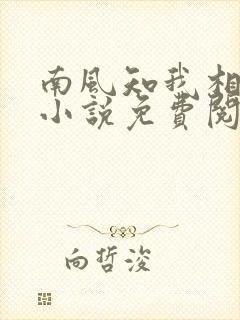 南风知我相
小说免費阅
向哲浚